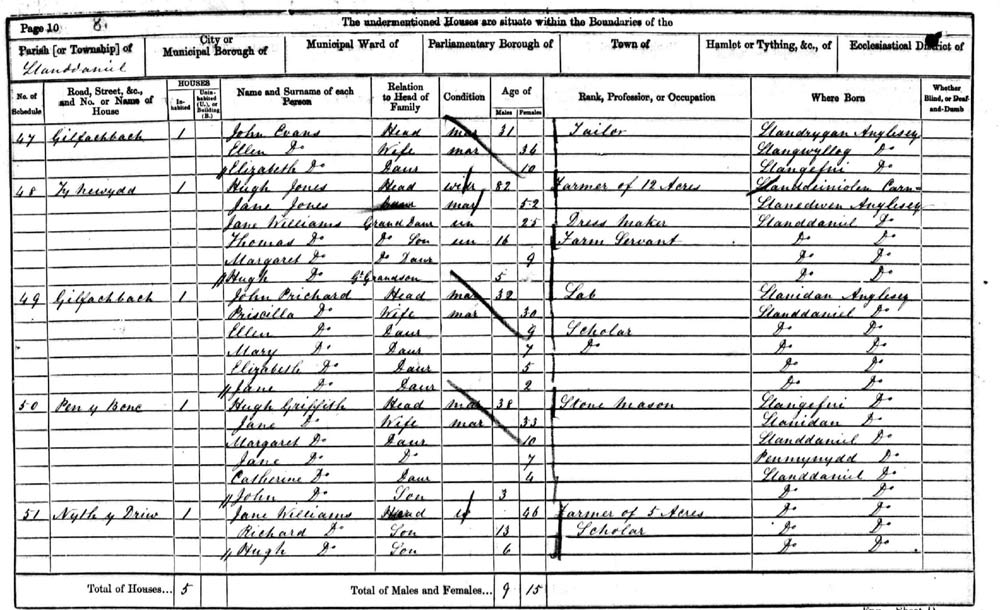 Page 10 8.
The undermentioned Houses are situate within the Boundaries of the
Parish [or Township] of Llanddaniel
City or Municipal Borough of
Municipal Ward of
Parliamentary Borough of
Town of
Hamlet or Tything, &c., of
Ecclesiastical District of
No. of Schedule
Road, Street, &c., and No. or Name of House
HOUSES
In-habited
Unin-habited (U.), or Building (B.)
Name and Surname of each Person
Relation to Head of Family
Condition
Age of
Males
Females
Rank, Profession, or Occupation
Where Born
Whether Blind, or Deaf-and-Dumb
47 Gilfachbach 1 John Evans Head mar 31 Tailor Llandrygan Anglesey
Ellen Do Wife mar 36 Llangwyllog Do
Elizabeth Do Daur 10 Llangefni Do
48 Ty Newydd 1 Hugh Jones Head widr 82 Farmer of 12 Acres Llanddeiniolen Carn-
Jane Jones mar 52 Llanedwen Anglesey
Jane Williams Grand Daur un 25 Dress Maker Llanddaniel Do
Thomas Do Do Son un 16 Farm Servant Do Do
Margaret Do Do Daur 9 Do Do
Hugh Do Gt Grandson 5 Do Do
49 Gilfachbach 1 John Prichard Head mar 32 Lab Llanidan Anglesey
Priscilla Do Wife mar 30 Llanddaniel Do
Ellen Do Daur 9 Scholar Do Do
Mary Do Daur 7 Do Do Do
Elizabeth Do Daur 5 Do Do
Jane Do Daur 2 Do Do
50 Pen y Bonc 1 Hugh Griffith Head mar 38 Stone Mason Llangefni Do
Jane Do Wife mar 33 Llanidan Do
Margaret Do Daur 10 Llanddaniel Do
Jane Do Do 7 Penmynydd Do
Catherine Do Daur 4 Llanddaniel Do
John Do Son 3 Do Do
51 Nyth y Driw 1 Jane Williams Head 46 Farmer of 5 Acres Do Do
Richard Do Son 13 Scholar Do Do
Hugh Do Son 6 Do Do
Total of Houses... 5 Total of Males and Females... 9 15